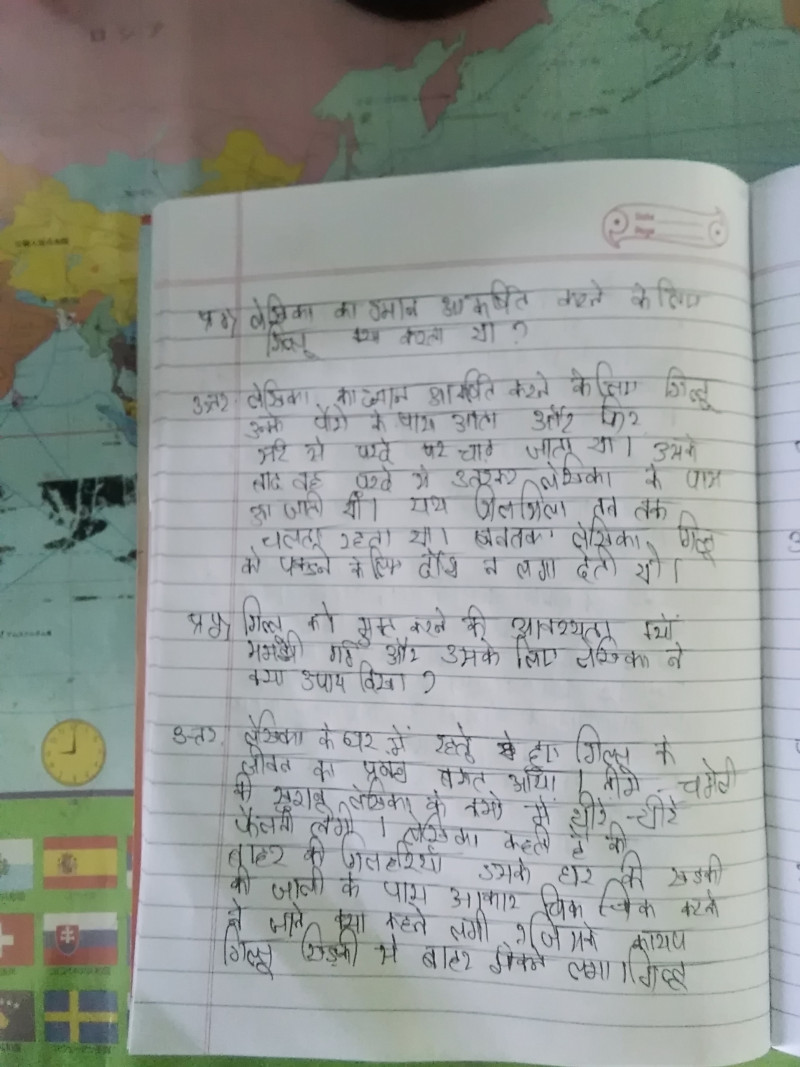 ロシア
Date
Page
प्रश्न लेखिका का ध्यान आकर्षित करने के लिए
गिल्लू क्या करता था ?
उत्तर. लेखिका का ध्यान आकर्षित करने के लिए गिल्लू
उनके पैरो के पास आता और फिर
सर्र से परदे पर चला जाता था। उसके
बाद वह परदे से उतरकर लेखिका के पास
आ जाता था। यह सिलसिला तब तक
चलता रहता था। जबतक लेखिका, गिल्लू
को पकडने के लिए दौड न लगा देती थी।
प्रश्न गिल्लू को मुक्त करने की आवश्यता क्यों
समझी गई और उसके लिए लेखिका ने
क्या उपाय किया ?
उत्तर. लेखिका के घर में रहते हुए गिल्लू के
जीवन का प्रथम बसंत आया। नीम - चमेली
की खुशबू लेखिका के कमरे में धीरे - धीरे
फैलने लगी। लेखिका कहती है की
बाहर की गिलहरियाँ उसके घर की खिडकी
की जाली के पास आकार चिक चिक करके
न जाने क्या कहने लगी ? जिसके कारण
गिल्लू खिड़की से बाहर झांकने लगा। गिल्लू